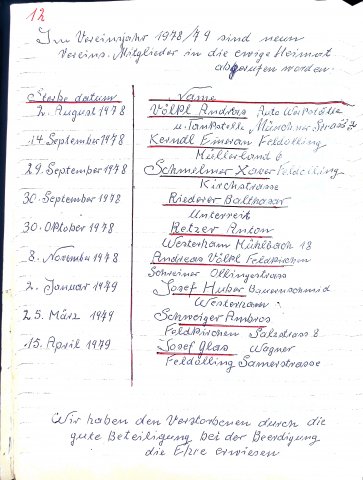 12
Im Vereinsjahr 1978/79 sind neun
Vereins. Mitglieder in die ewige Heimat
abgerufen worden
Sterbe datum Name
2. August 1978 Völkl Andreas Auto Werkstätte
u. Tankstelle Münchner Strasse
14. September 1978 Kerndl Emeran Feldolling
Müllerland 6
29. September 1978 Schmelmer Xaver Feldolling
Kirchstrasse
30. September 1978 Riederer Balthasar
Unterreit
30. Oktober 1978 Retzer Anton
Westerham Mühlbach 18
8. November 1978 Andreas Völkl Feldkirchen
Schreiner Ollingerstrass
2. Januar 1979 Josef Huber Bauernschmid
Westerham
25. März 1979 Schweiger Ambros
Feldkirchen Salzstrass 8
15. April 1979 Josef Glas Wagner
Feldolling Samerstrasse
Wir haben den Verstorbenen durch die
gute Beteiligung bei der Beerdigung
die Ehre erwiesen